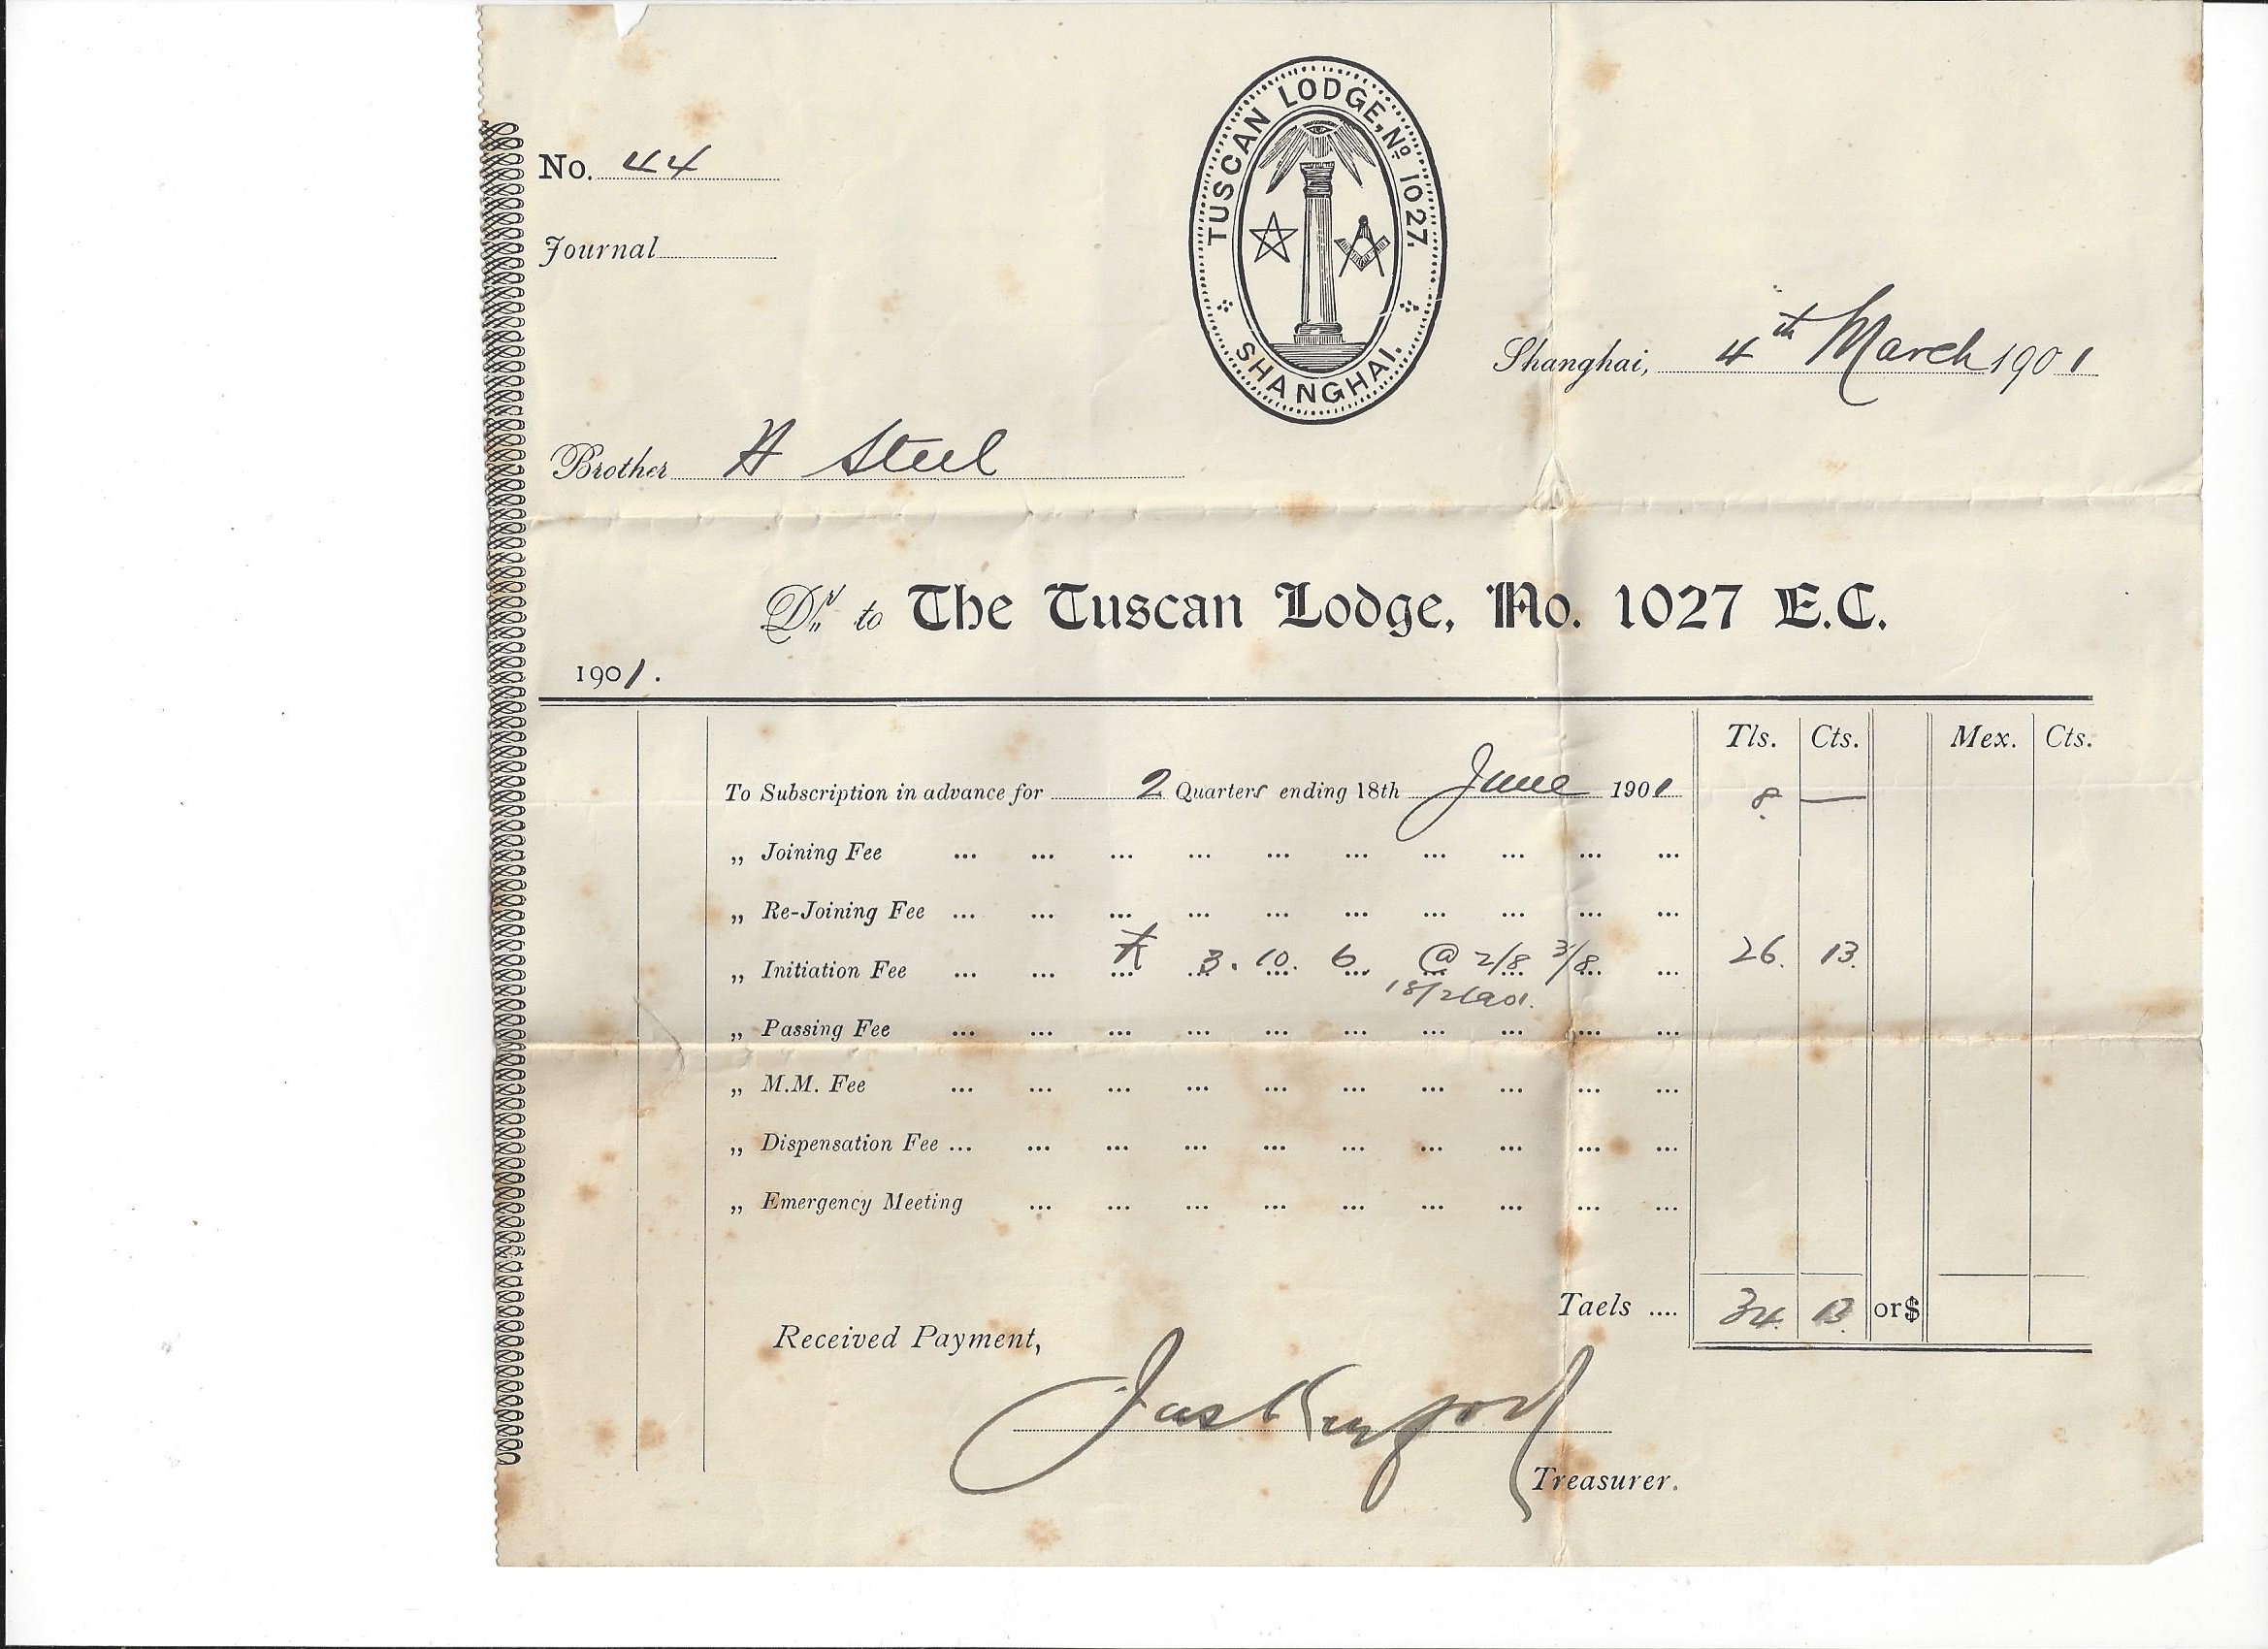 No. 44
TUSCAN LODGE, No 1027.
SHANGHAI.
Journal
Shanghai, 4th March 1901
Brother H Steel
Dr. to The Tuscan Lodge, No. 1027 E.C.
1901.
Tls. Cts. Mex. Cts.
To Subscription in advance for 2 Quarters ending 18th June 1901 8. —
„ Joining Fee ... ... ... ... ... ... ... ... ... ...
„ Re-Joining Fee ... ... ... ... ... ... ... ... ... ...
„ Initiation Fee ... ... £ 3. 10. 6. @ 2/8 3/8 ... 26. 13.
18/2/1901.
„ Passing Fee ... ... ... ... ... ... ... ... ... ...
„ M.M. Fee ... ... ... ... ... ... ... ... ... ...
„ Dispensation Fee ... ... ... ... ... ... ... ... ... ...
„ Emergency Meeting ... ... ... ... ... ... ... ... ...
Taels .... 34. 13. or $
Received Payment,
Jas
Treasurer.